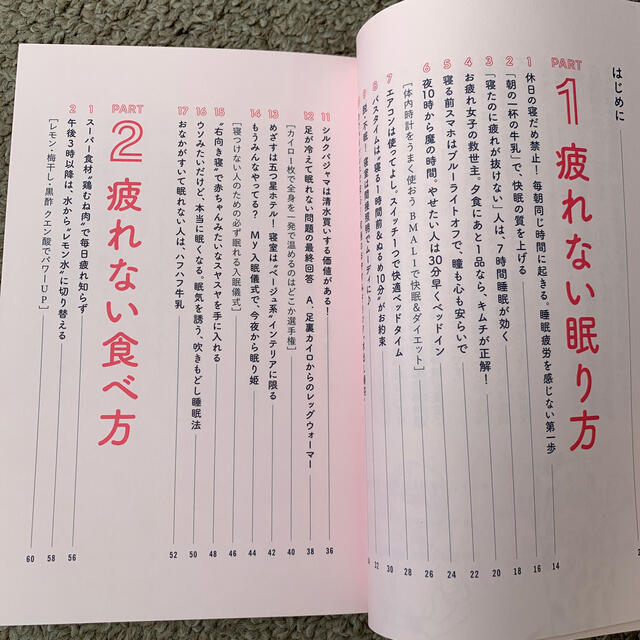 はじめに
PART
1 疲れない眠り方
1 休日の寝だめ禁止！ 毎朝同じ時間に起きる。睡眠疲労を感じない第一歩 14
2 「朝の一杯の牛乳」で、快眠の質を上げる 16
3 「寝たのに疲れが抜けない」人は、7時間睡眠が効く 18
4 お疲れ女子の救世主。夕食にあと1品なら、キムチが正解！ 20
5 寝る前スマホはブルーライトオフで、瞳も心も安らいで 22
6 夜10時から魔の時間。やせたい人は30分早くベッドイン 24
26
［体内時計をうまく使おう BMAL1で快眠&ダイエット］ 28
7 エアコンは使ってよし。スイッチ1つで快適ベッドタイム 30
8 バスタイムは"寝る1時間前&ぬるめ10分"がお約束 32
寝室は間接照明でムーディに♪
11 シルクパジャマは清水買いする価値がある！ 36
12 足が冷えて眠れない問題の最終回答 A、足裏カイロからのレッグウォーマー 38
［カイロ1枚で全身を一発で温めるのはどこか選手権］ 40
13 めざすは五つ星ホテル！ 寝室は"ベージュ系"インテリアに限る 42
14 もうみんなやってる？ My入眠儀式で、今夜から眠り姫 44
［寝つけない人のための必ず眠れる入眠儀式］ 46
15 "右向き寝"で赤ちゃんみたいなスヤスヤを手に入れる 48
16 ウソみたいだけど、本当に眠くなる。眠気を誘う、吹きもどし睡眠法 50
17 おなかがすいて眠れない人は、ハフハフ牛乳 52
PART
2 疲れない食べ方
1 スーパー食材"鶏むね肉"で毎日疲れ知らず 56
2 午後3時以降は、水から"レモン水"に切り替える 58
［レモン・梅干し・黒酢 クエン酸でパワーUP］ 60